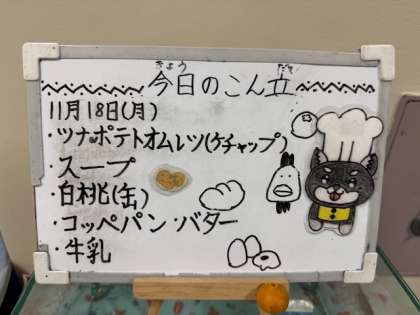 きょう だて
今日のこん立
11月18日(月)
・ツナポテトオムレツ(ケチャップ)
・スープ
・白桃(缶)
・コッペパン・バター
・牛乳